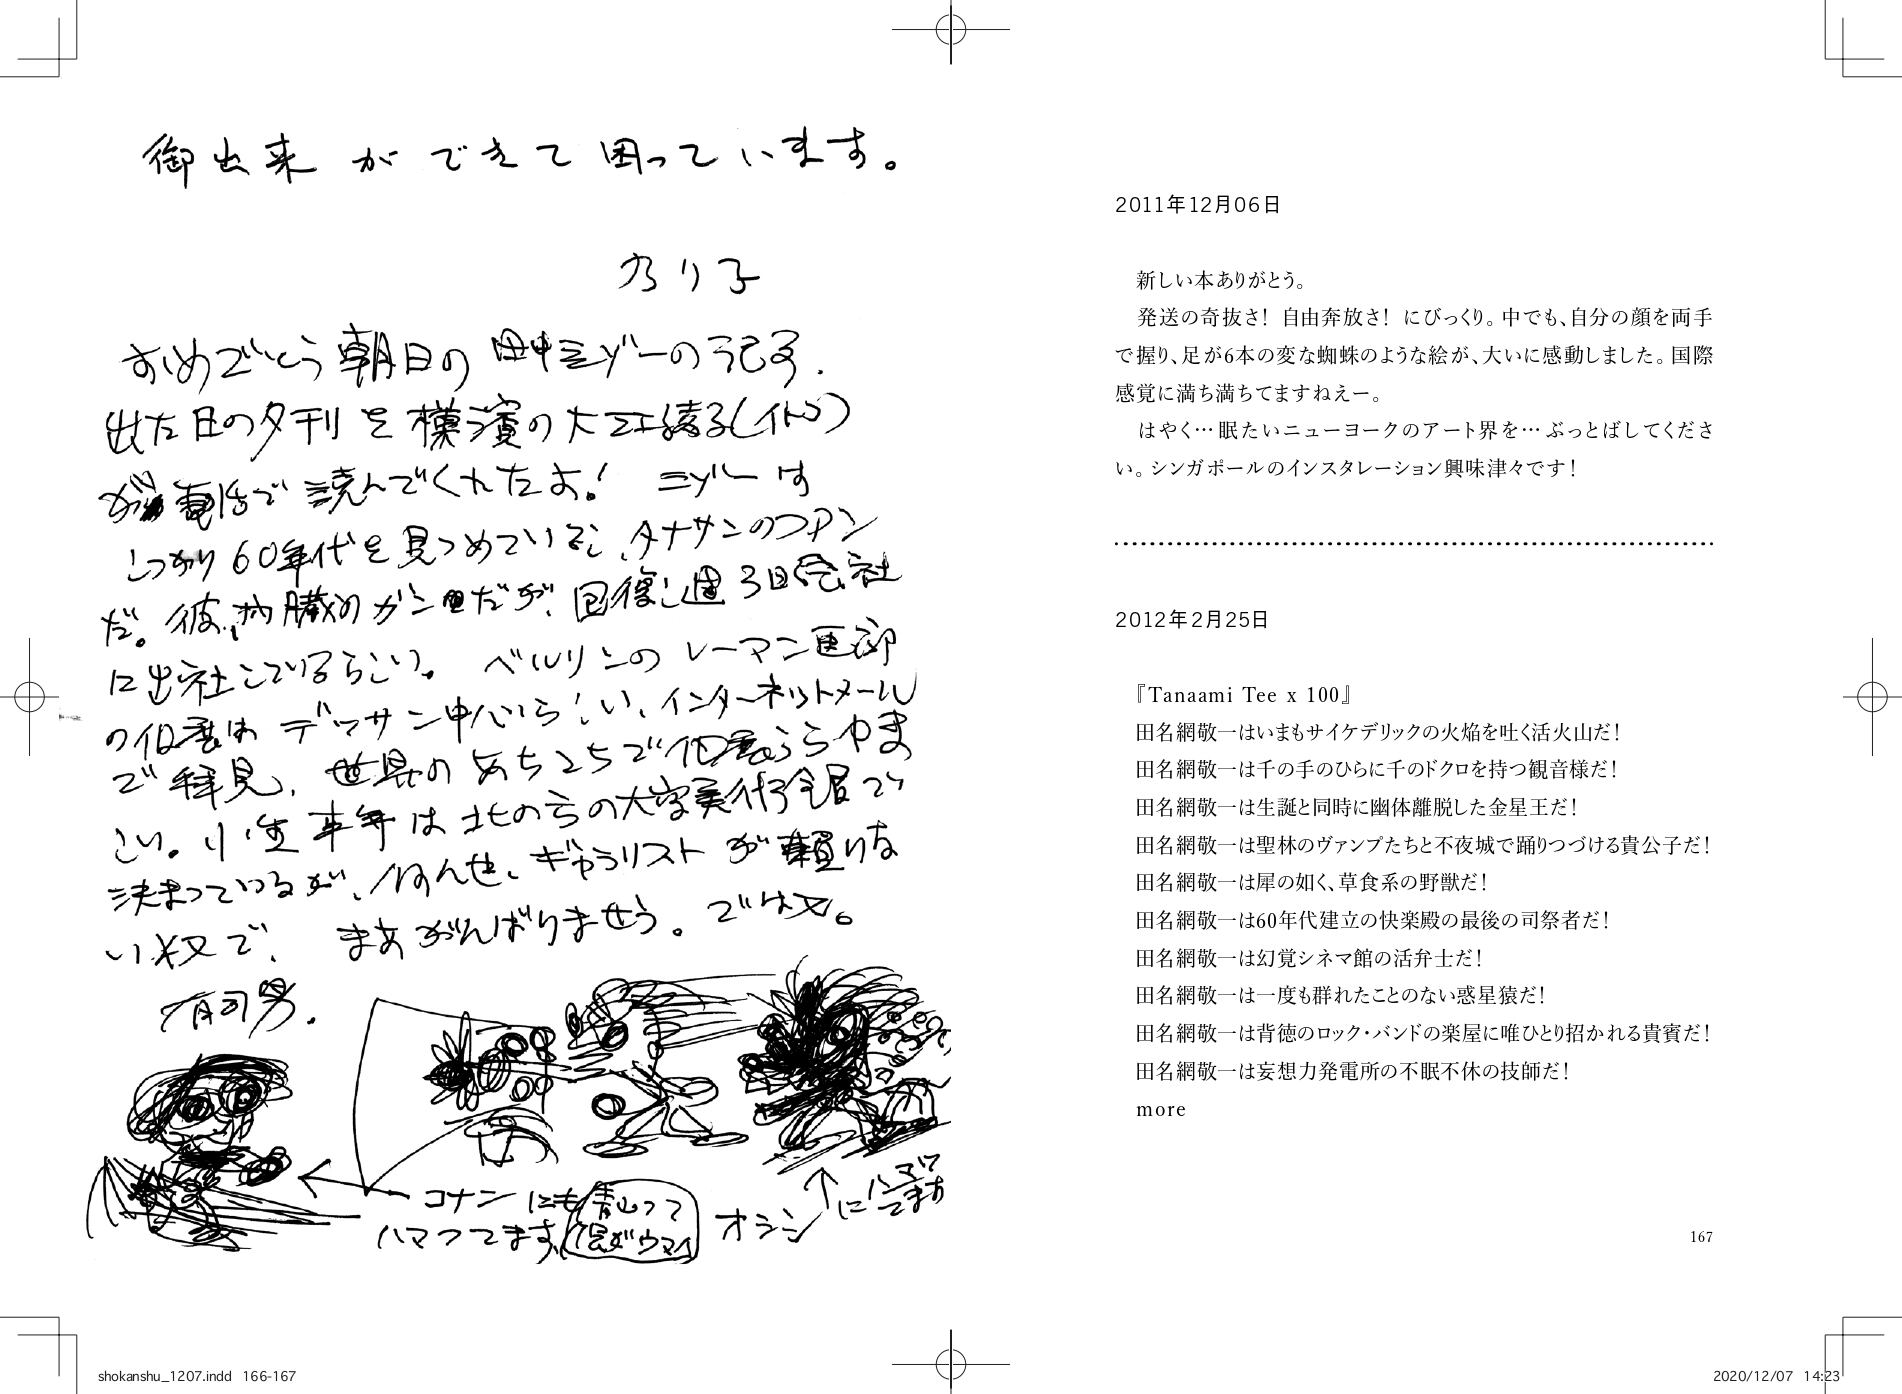 御出来ができて困っています。
乃り子
おめでとう朝日の田中三ゾーの記事.
出た日の夕刊を横濱の大工綾子(イトコ)
が電話で読んでくれたよ! 三ゾーは
しっかり60年代を見つめているし、タナサンのファン
だ。彼、内臓のガンだが、回復し週3日会社
に出社しているらしい。 ベルリンのレーマン画廊
の個展はデッサン中心らしい、インターネットメール
で拝見、世界のあちこちで個展うらやま
しい。小生来年は北の方の大学美術館で
決まっているが、何んせ、ギャラリストが頼りな
い奴で、まあがんばりませう。では又。
有司男.
コナンにも
ハマってます、
青山って
ウマイ
オシシ
にハマっ
てます
2011年12月06日
新しい本ありがとう。
発送の奇抜さ! 自由奔放さ! にびっくり。中でも、自分の顔を両手
で握り、足が6本の変な蜘蛛のような絵が、大いに感動しました。国際
感覚に満ち満ちてますねえー。
はやく…眠たいニューヨークのアート界を…ぶっとばしてくださ
い。シンガポールのインスタレーション興味津々です!
2012年2月25日
『Tanaami Tee x 100』
田名網敬一はいまもサイケデリックの火焔を吐く活火山だ!
田名網敬一は千の手のひらに千のドクロを持つ観音様だ!
田名網敬一は生誕と同時に幽体離脱した金星王だ!
田名網敬一は聖林のヴァンプたちと不夜城で踊りつづける貴公子だ!
田名網敬一は犀の如く、草食系の野獣だ!
田名網敬一は60年代建立の快楽殿の最後の司祭者だ!
田名網敬一は幻覚シネマ館の活弁士だ!
田名網敬一は一度も群れたことのない惑星猿だ!
田名網敬一は背徳のロック・バンドの楽屋に唯ひとり招かれる貴賓だ!
田名網敬一は妄想力発電所の不眠不休の技師だ!
more
167
shokanshu_1207.indd 166-167
2020/12/07 14:23